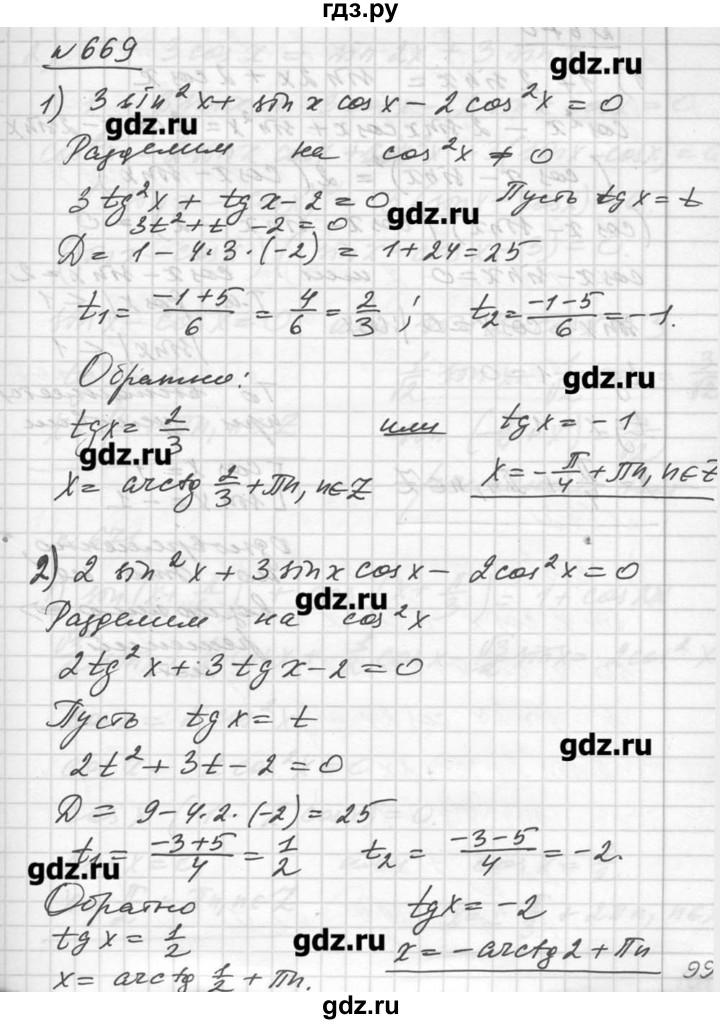 гдз.ру
№ 669
1) 3 sin²x + sin x cos x − 2 cos²x = 0
gdz.ru
Разделим на cos²x ≠ 0
3 tg²x + tg x − 2 = 0 Пусть tg x = t
gdz.ru
3t² + t − 2 = 0
D = 1 − 4·3·(−2) = 1 + 24 = 25
t₁ = (−1+5)/6 = 4/6 = 2/3 ; t₂ = (−1−5)/6 = −1.
Обратно:
gdz.ru
tg x = 2/3 или tg x = −1
gdz.ru
x = arctg 2/3 + πn, n∈Z x = −π/4 + πn, n∈Z
2) 2 sin²x + 3 sin x cos x − 2 cos²x = 0
gdz.ru
Разделим на cos²x
2 tg²x + 3 tg x − 2 = 0
Пусть tg x = t
gdz.ru
2t² + 3t − 2 = 0
D = 9 − 4·2·(−2) = 25
t₁ = (−3+5)/4 = 1/2 t₂ = (−3−5)/4 = −2.
gdz.ru
Обратно tg x = −2
tg x = 1/2 x = −arctg 2 + πn
gdz.ru
x = arctg 1/2 + πn.
99
gdz.ru